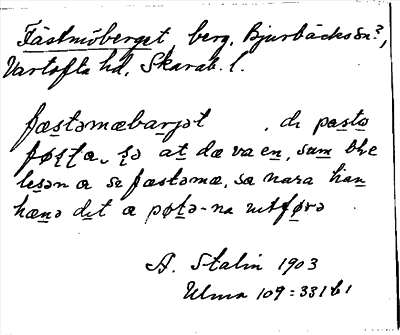 Fästmöberget berg, Bjurbäcks sn?,
Vartofta hd, Skarab. l.
fæstəmœbarjət , dɩ pastə
at dæ va en, sum ble
lesən a sɩ fæstəmœ, sa nara han
hænə dɩt a nɑ utførə
A. Stalin 1903
Ulma 109:331 b 1